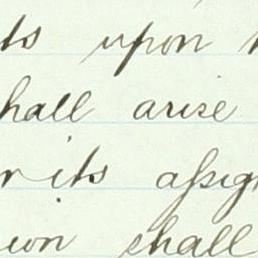 ts upon
hall arise
r its assig
ion shall